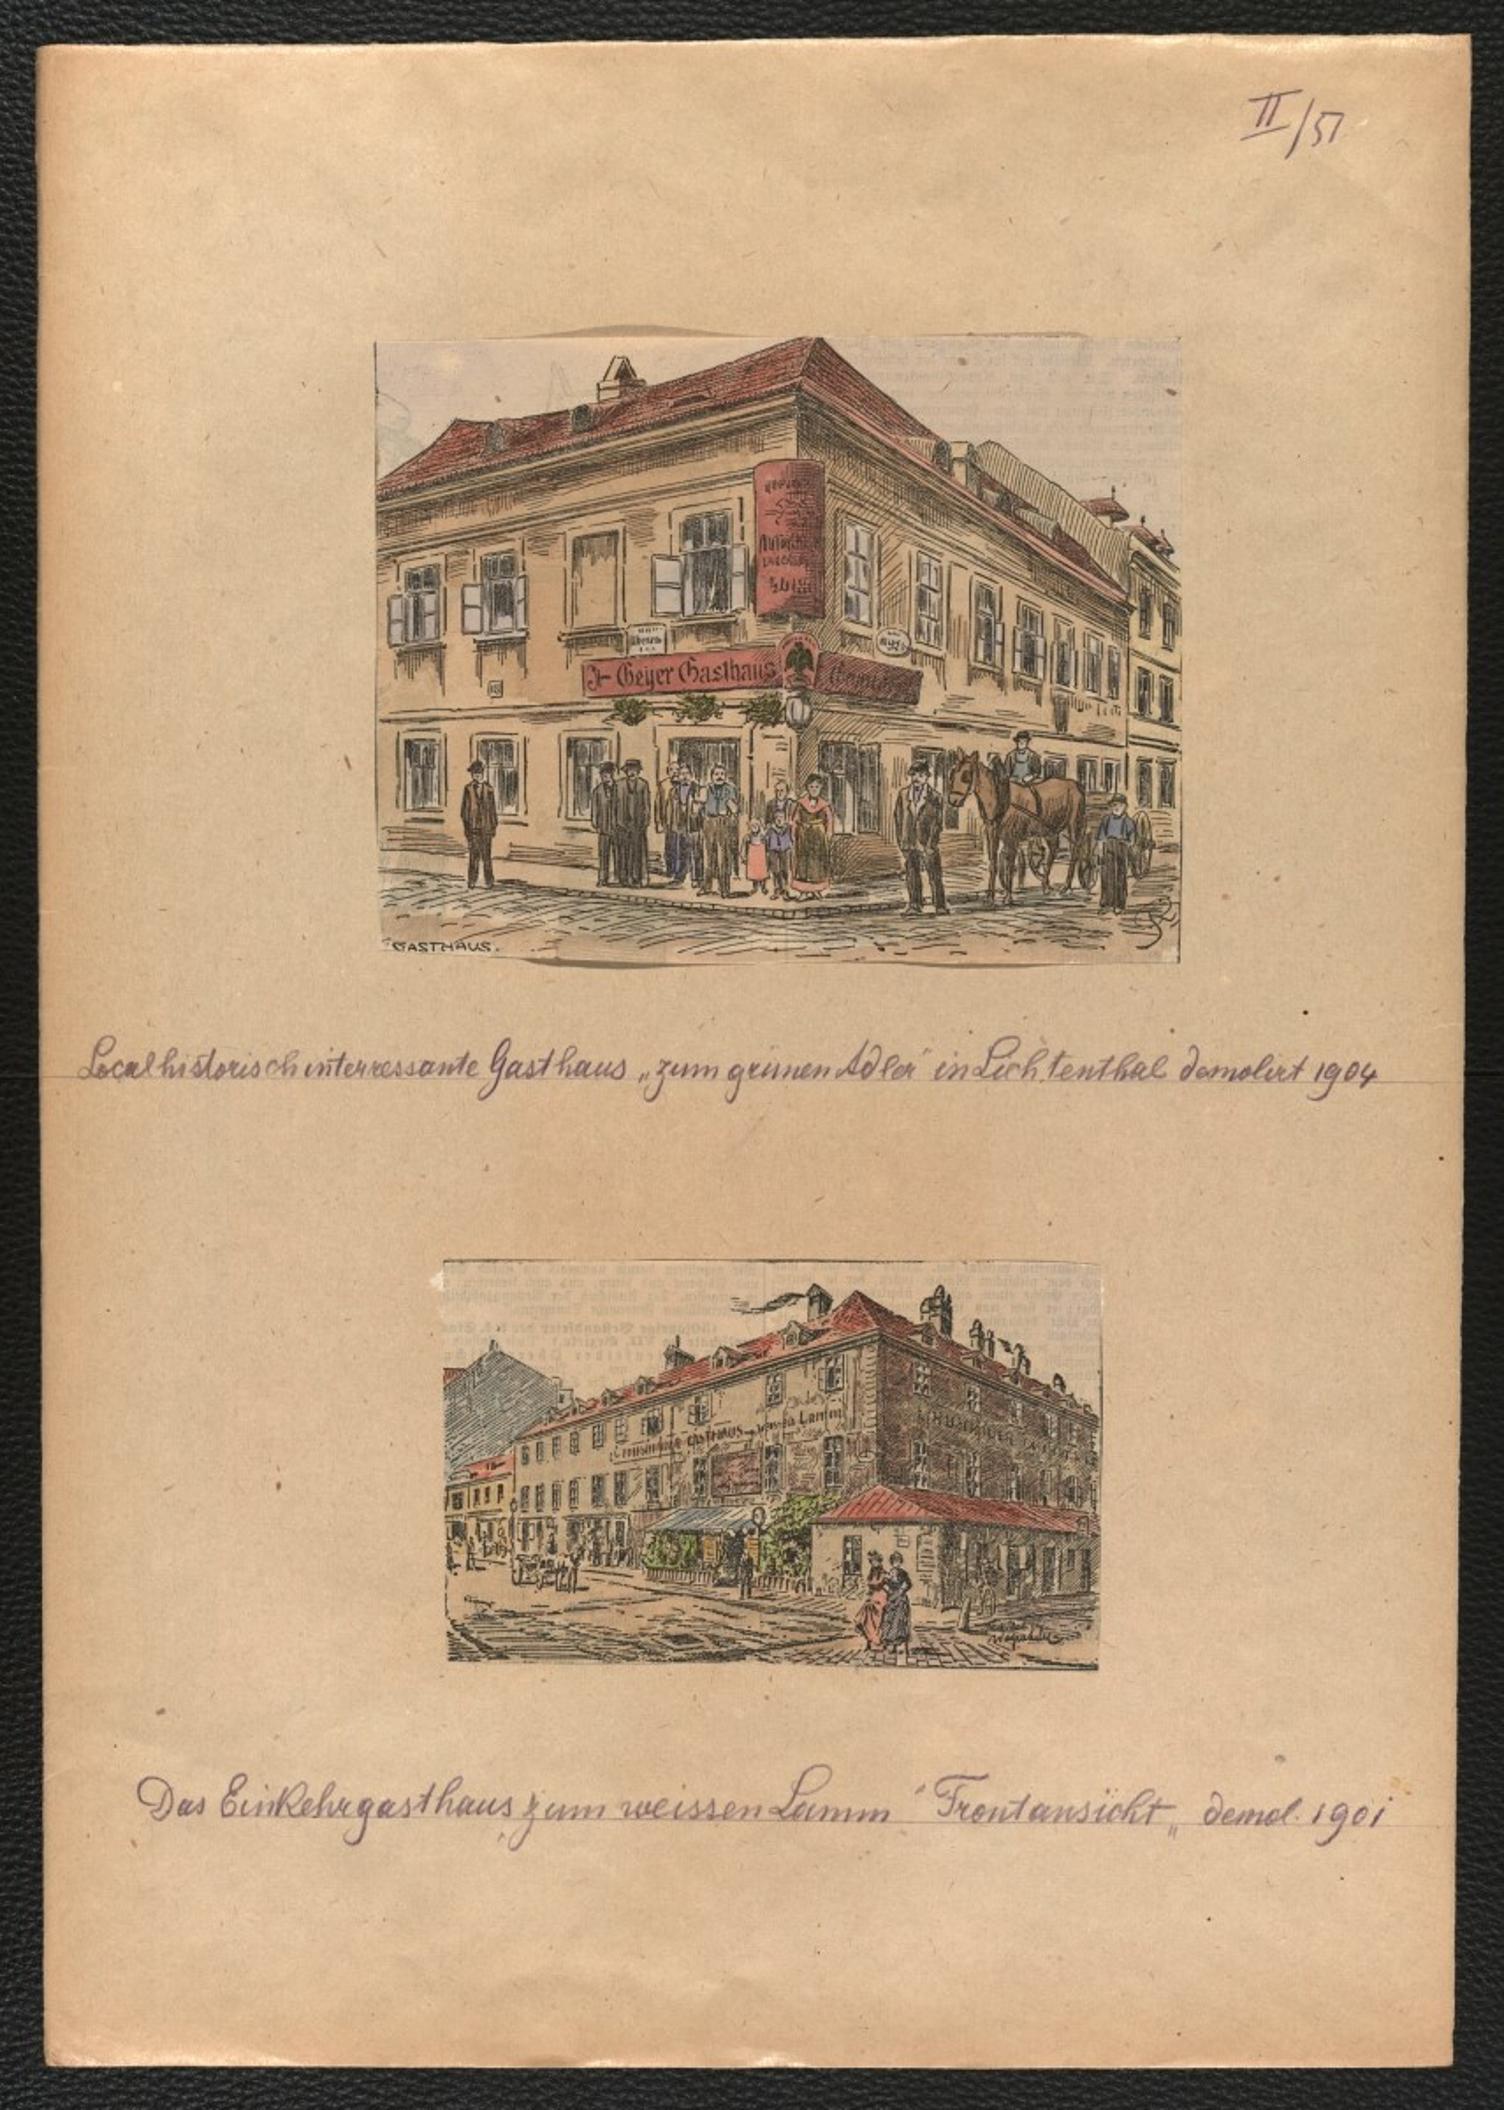 II/51
Geyer Gasthaus
GASTHAUS.
Localhistorisch interressante Gasthaus „zum grünen Adler" in Lichtenthal demolirt 1904
GASTHAUS
Lamm
Das Einkehrgasthaus „zum weissen Lamm" Frontansicht „ demol. 1901